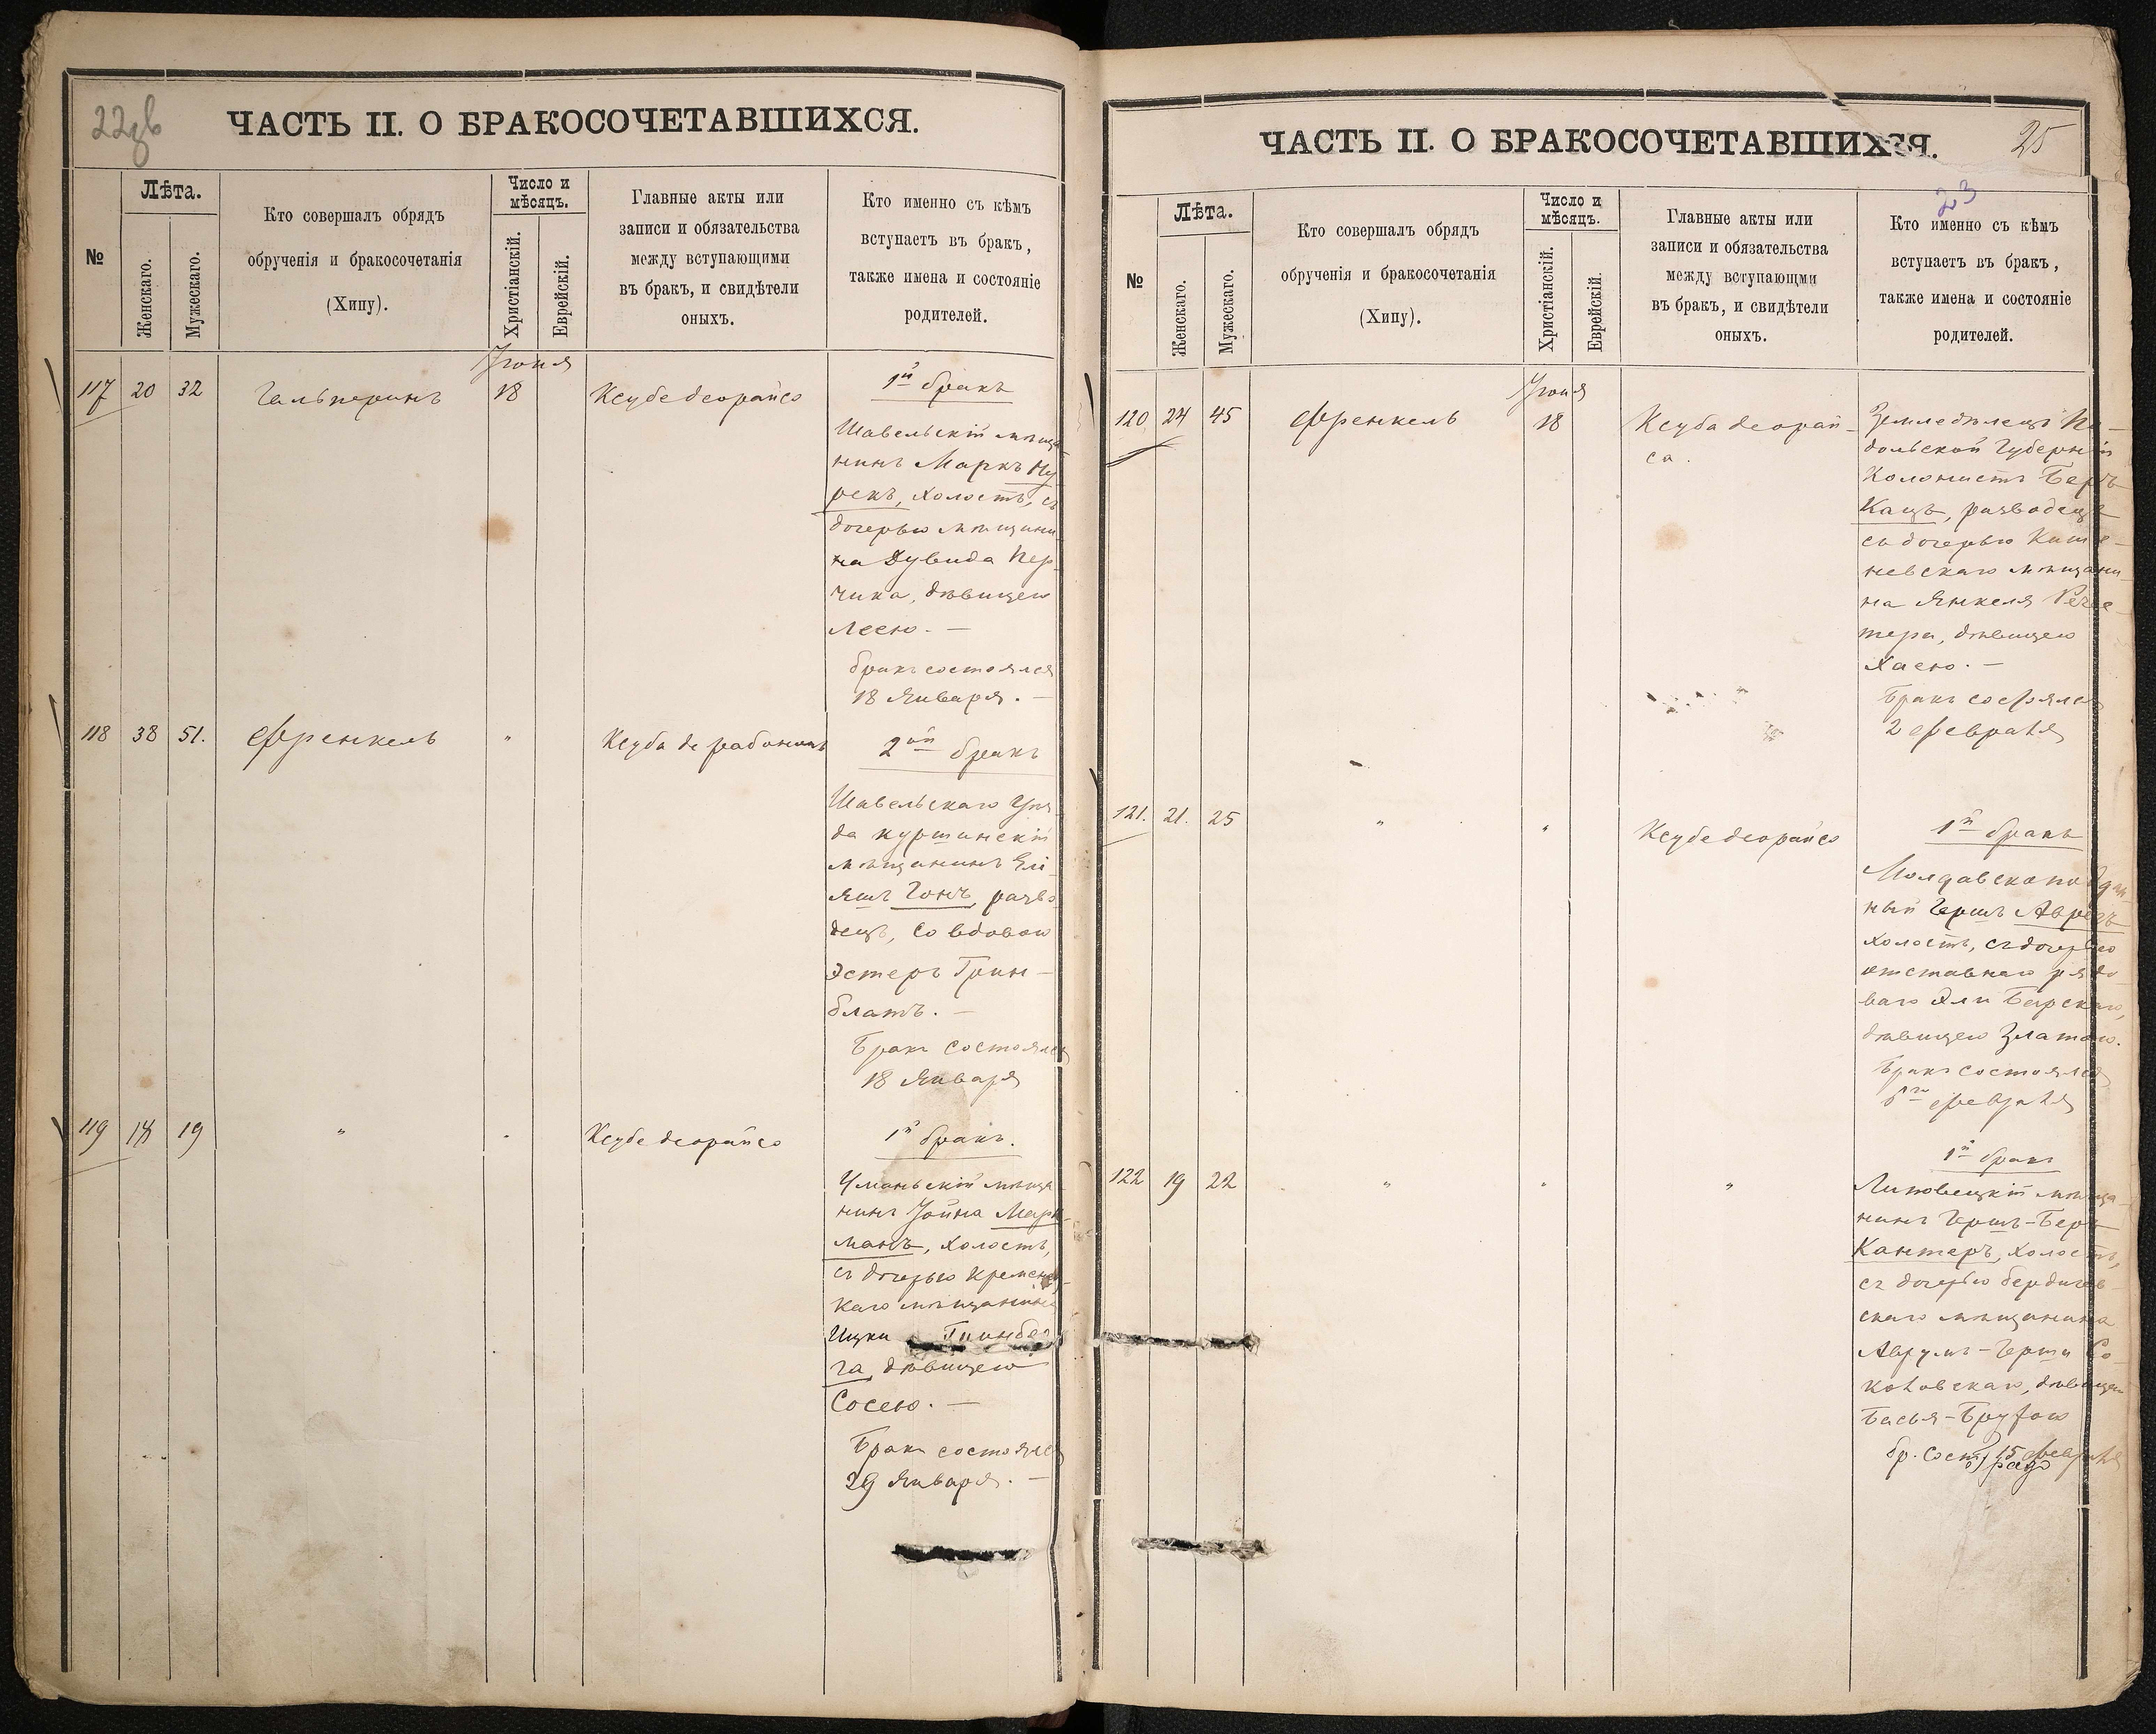 22зв
ЧАСТЬ II. О БРАКОСОЧЕТАВШИХСЯ.
№
Лѣта.
Женскаго.
Мужескаго.
Кто совершалъ обрядъ
обрученія и бракосочетанія
(Хипу).
Число и
мѣсяцъ.
Христіанскій.
Еврейскій.
Главные акты или
записи и обязательства
между вступающими
въ бракъ, и свидѣтели
оныхъ.
Кто именно съ кѣмъ
вступаетъ въ бракъ,
также имена и состояніе
родителей.
Іюня
117 20 32 Гальперинъ 18 Ксубе деорайсо
1й бракъ
Шавельскій мѣща
нинъ Маркъ Ну
рокъ, холостъ, съ
дочерью мѣщани
на Дувида Пер-
чика, дѣвицею
Леею. —
бракъ состоялся
18 Января. —
118 38 51. Френкель " Ксуба де рабононъ
2ой бракъ
Шавельскаго уѣз
да куршинскій
мѣщанинъ Элі
яшъ Гонъ, разво
децъ, со вдовою
Эстеръ Грин-
блатъ. —
Бракъ состоялся
18 Января
119 18 19 " " Ксубе деорайсо
1й бракъ.
Уманьскій мѣща
нинъ Іойна Марк-
манъ, холостъ,
съ дочерью кременец-
каго мѣщанина
Ицки Гринбер
га, дѣвицею
Сосею. —
Бракъ состоялся
29 Января. —
ЧАСТЬ II. О БРАКОСОЧЕТАВШИХСЯ.
25
23
№
Лѣта.
Женскаго.
Мужескаго.
Кто совершалъ обрядъ
обрученія и бракосочетанія
(Хипу).
Число и
мѣсяцъ.
Христіанскій.
Еврейскій.
Главные акты или
записи и обязательства
между вступающми
въ бракъ, и свидѣтели
оныхъ.
Кто именно съ кѣмъ
вступаетъ въ бракъ,
также имена и состояніе
родителей.
Іюня
120 24 45 Френкель 18 Ксуба деорай-
са.
Земледѣлецъ По-
дольской Губерніи
Колонистъ Беръ
Кацъ, разводецъ
съ дочерью Кише-
невскаго мѣщани
на Янкеля
тера, дѣвицею
Хаею. —
Бракъ состоялся
2 февраля
121. 21. 25 " " Ксубе деорайсо
1й бракъ
Молдавскоподдан
ный Гершъ
холостъ, съ дочерью
отставнаго рядо
ваго Эли Берскаго,
дѣвицею Златою.
Бракъ состоялся
февраля
1й бракъ
122 19 22 " " "
Липовецкій мѣща
нинъ Гершъ-Беръ
Канторъ, холостъ,
съ дочерью бердичев
скаго мѣщанина
Аврумъ-Герша Со
коловскаго, дѣвицею
Бася-Брухою
бр. сост. 15 февраля